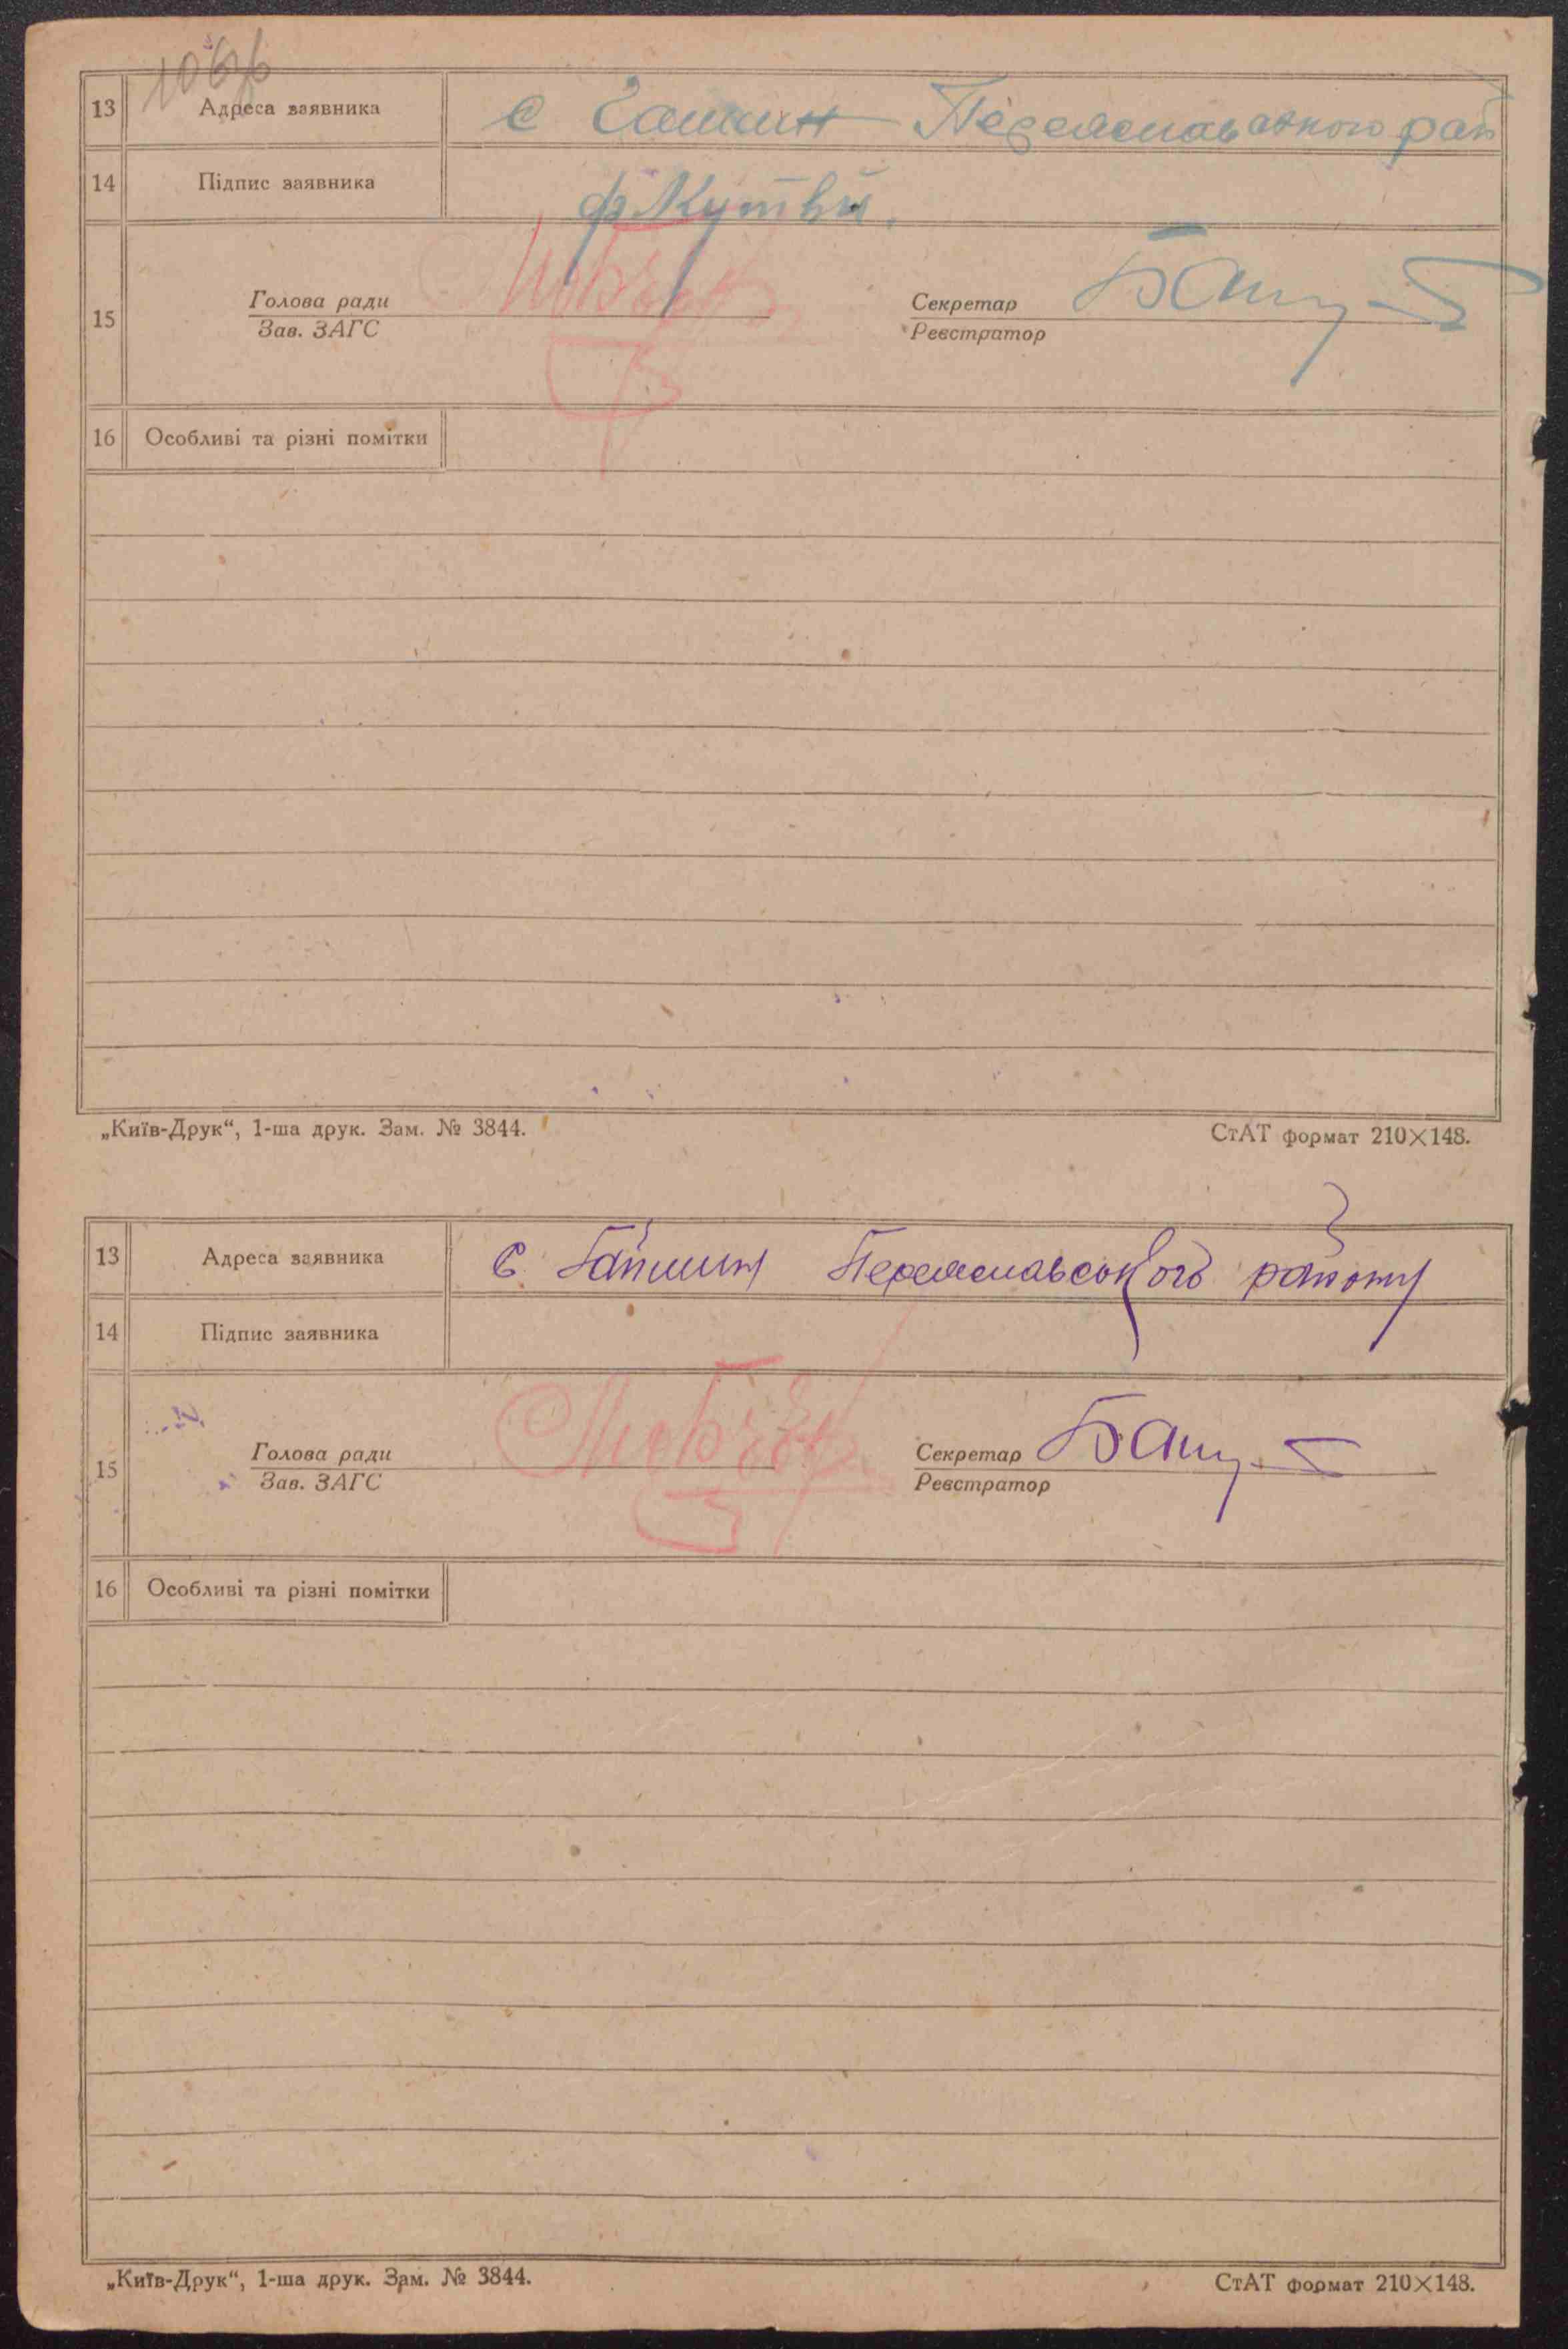 13 Адреса заявника с Гайшин Переяславського рай
14 Підпис заявника
15 Голова ради Секретар
Зав. ЗАГС Реєстратор
16 Особливі та різні помітки
„Київ-Друк“, 1-ша друк. Зам. № 3844. СтАТ формат 210×148.
13 Адреса заявника с Гайшин Переяславського району
14 Підпис заявника
15 Голова ради Секретар
Зав. ЗАГС Реєстратор
16 Особливі та різні помітки
„Київ-Друк“, 1-ша друк. Зам. № 3844. СтАТ формат 210×148.